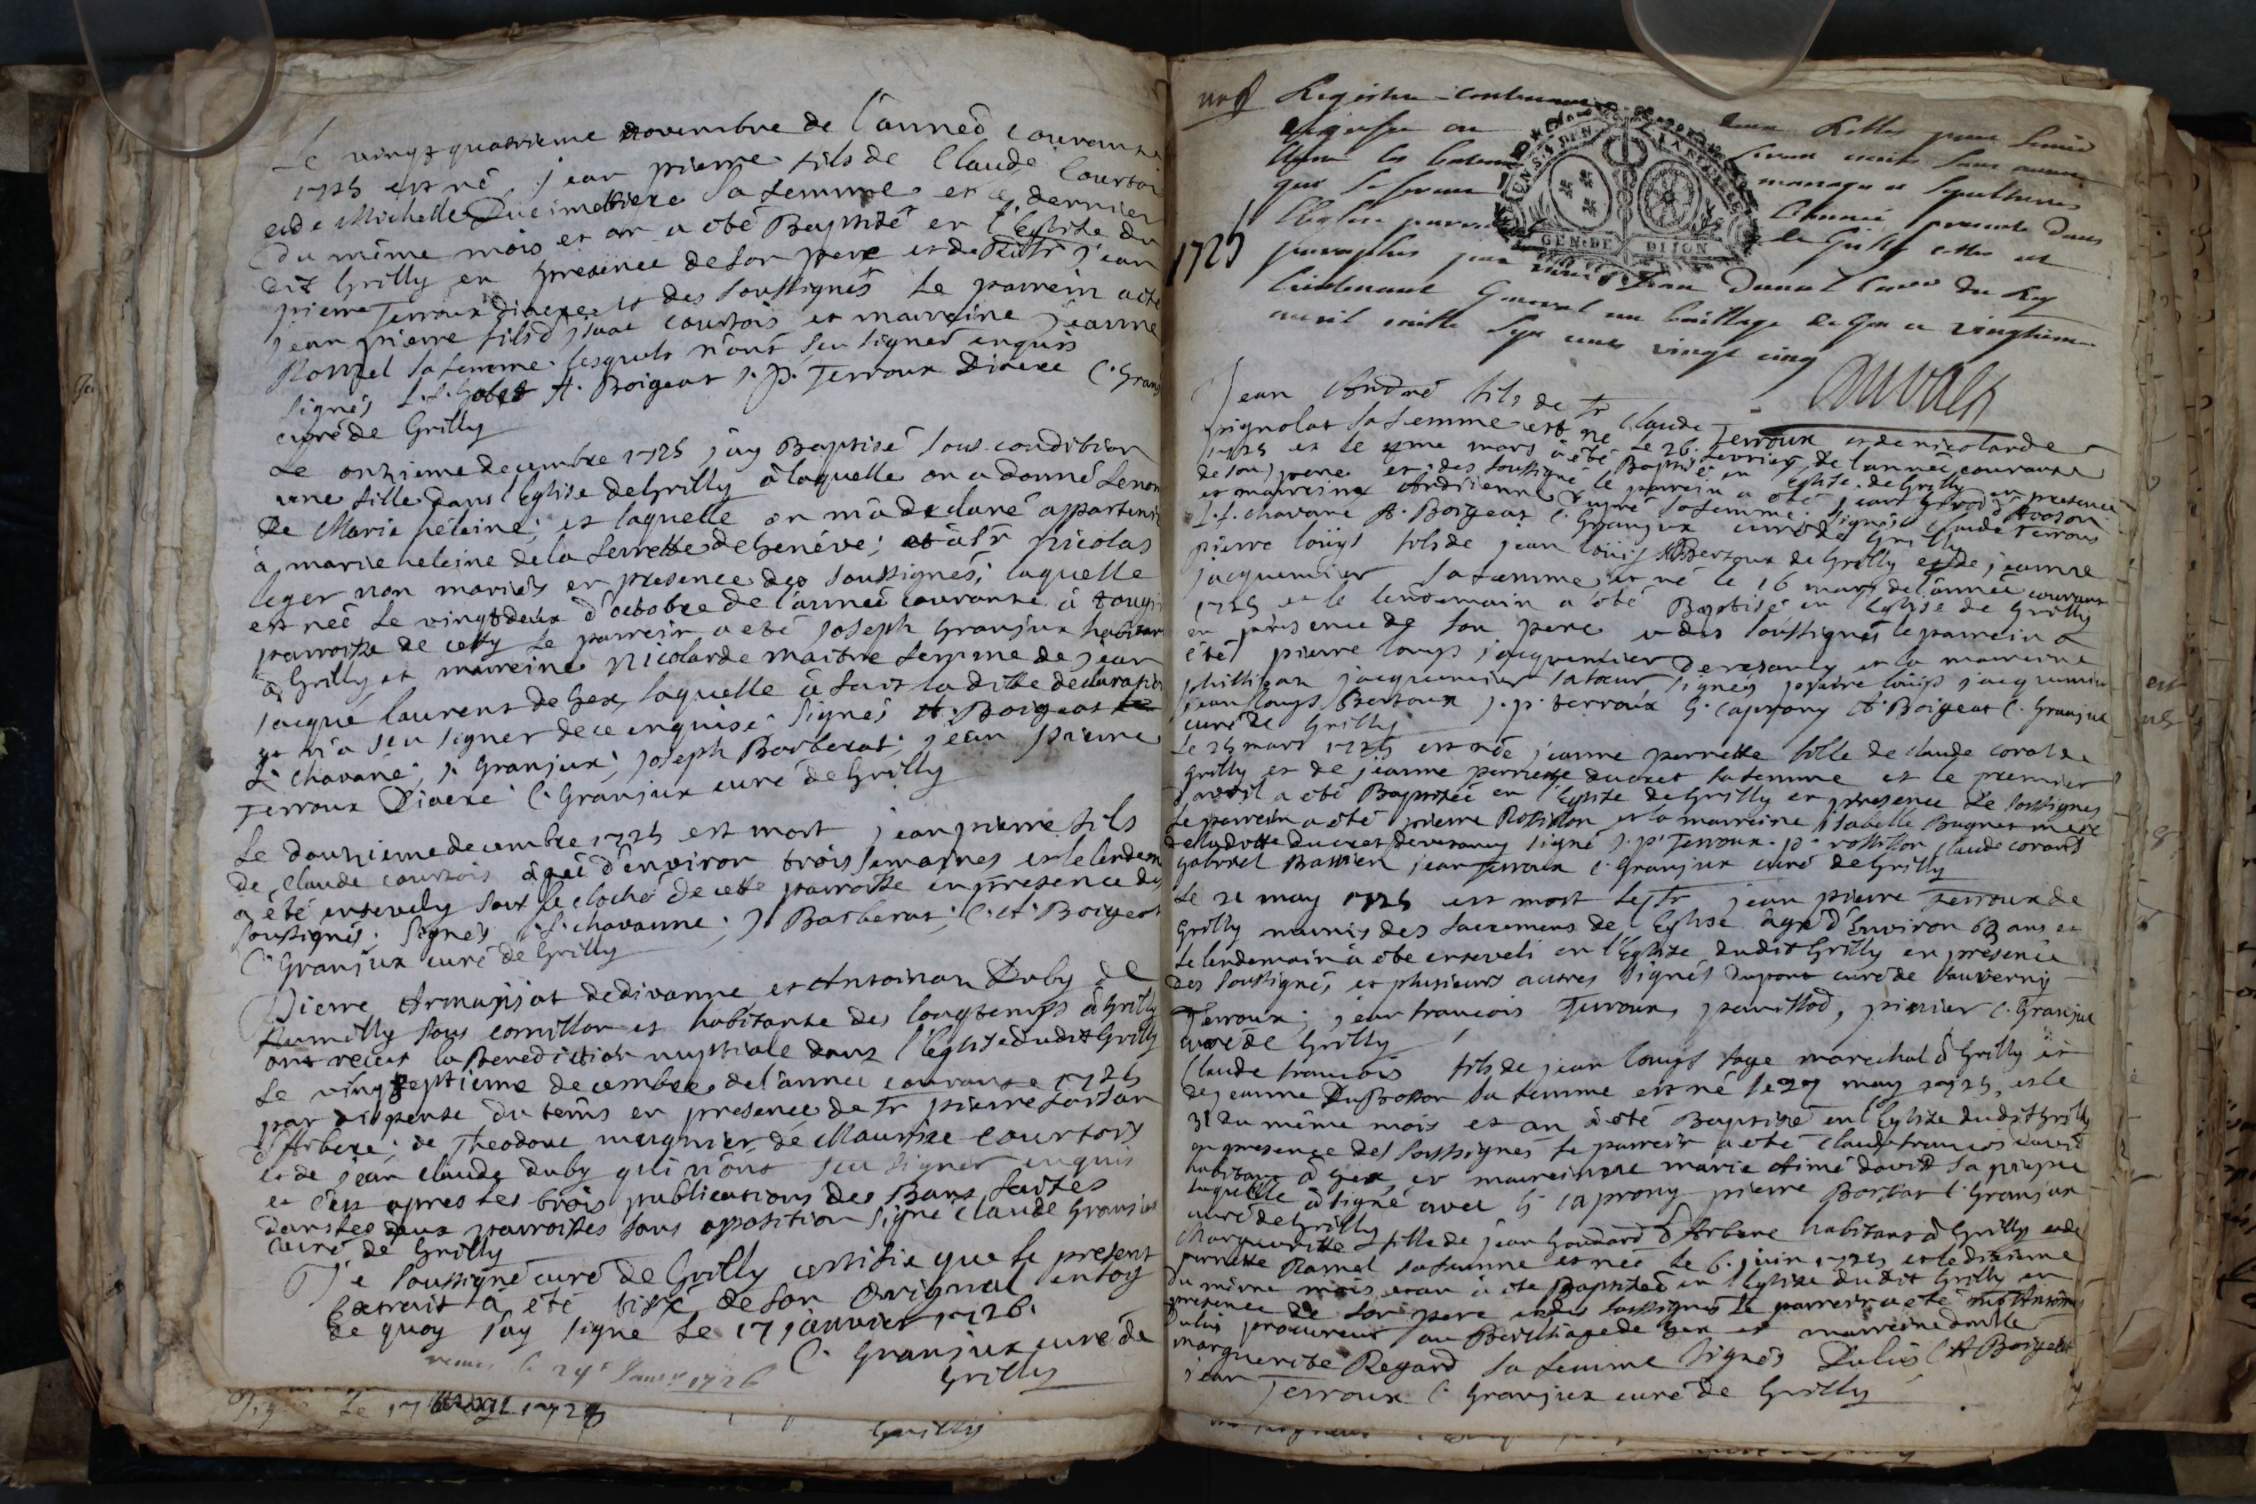 Le vingt quatrieme novembre de l'anneé courante
1725 est né jean pierre fils de Claude Courtoi
et de Michelle sa femme et le dernier
du même mois et an a eté Baptisé en l'Eglise du
dit Grilly en presence de son pere et de jean
pierre Terroux Diacre et des soussignés le parrein a eté
jean pierre fils d'isaac courtois et marreine jeanne
sa femme lesquels n'ont seu signer enquis
signés A. Boigeat J. P. Terroux Diacre C. Gran
curé de Grilly
Le onzieme decembre 1725 j'ay Baptisé sous condition
une fille dans l'Eglise de Grilly à laquelle on a donné le nom
de Marie heleine; et laquelle on m'a declaré appartenir
à marie heleine de la Serrette de Genéve; et à Sr nicolas
leger non mariés en presence des soussignés; laquelle
est née le vingt deux d'octobre de l'année courante à tougin
parroisse de le parrein a eté Joseph Granjux habitant
à Grilly et mareine Nicolarde maitre femme de jean
jacque laurent de Gex, laquelle à fait la ditte declaration
et n'a seu signer de ce enquise signés A. Boigeat
Chavane; J. Granjux; Joseph Barberat; jean pierre
Terroux Diacre C. Granjux curé de Grilly
Le douzieme decembre 1725 est mort jean pierre fils
de Claude courtois âgé d'environ trois semaines et le lendem
a été ensevely sous le cloché de cette parroisse en presence des
soussignés. Signés chavanne; J Barberat; A. Boigeat
C. Granjux curé de Grilly
Pierre de divanne et Antoinaz Duby de
Rumilly sous cornillon et habitante des longtemps à Grilly
ont reçus la Benediction nuptiale dans l'Eglise dudit Grilly
le vingt septieme decembre de l'année courante 1725
par dispense du tems en presence de Sr pierre
d'Arbere; de Theodore meugnier de Maurise courtois
et de jean claude duby qui n'ont seu signer enquis
et c'est apres les trois publications des Bans faites
dans les deux parroisses sans opposition signé Claude Granjux
curé de Grilly
Je soussigné curé de Grilly certifie que le present
Extrait à été tiré de son Original en foy
de quoy j'ay signé le 17 janvier 1726.
C. Granjux curé de
Grilly
remis le 24e Janvr 1726
Le 17 1726
Grilly
Registre contenant
deux feilles pour servir
seront ecrits sans aucun
mariages et sepultures
que se feront
l'Eglise
l'année presente dans
de Grilly cottes et
1725
paraphes par nous Jean Duval Con.er du Roy
Lieutenant General au bailliage de Gex ce vingtieme
avril mille sept cents vingt cinq
GEN. DE DIJON
Duval
Jean André fils de Sr Claude Terroux et de nicolarde
pignolat sa femme est né le 26. fevrier de l'année courante
1725 et le mars à été Baptisé en l'Eglise de Grilly en presence
de son pere et des soussigné le parrein a eté
et marreine Andrienne sa femme signés Claude Terroux
J. f. chavane A. Boigeat C. Granjux curé de Grilly
pierre loüys fils de jean loüys Bertoux de Grilly et de jeanne
jacquemier sa femme est né le 16 mars de l'année courante
1725 et le lendemain a été Baptisé en l'Eglise de Grilly
en presence de son pere et des soussignés le parrein a
été pierre louys jacquemier de et la marreine
jacquemier sa soeur signés pierre loüys jacquemier
jean louys Bertoux J. p. terroux G. caprony A. Boigeat C. Granjux
curé de Grilly
Le 25 mars 1725 est née jeanne pernette fille de claude corat de
Grilly et de jeanne pernette ducret sa femme et le premier
d'avril a eté Baptisée en l'Eglise de Grilly en presence de soussignes
le parrein a eté pierre Rossillon et la marreine isabelle Bugnet mere
de la ditte ducret de signé J. p. Terroux. p. rossillon claude corat
Gabriel jean Terroux C. Granjux curé de Grilly
Le 21 may 1725 est mort le Sr jean pierre Terroux de
Grilly munis des sacremens de l'Eglise âgé d'Environ 63 ans et
le lendemain à eté enseveli en l'Eglise dudit Grilly en presence
des soussignés et plusieurs autres signés Dupont curé de Sauverny
Terroux; jean francois Terroux, C. Granjux
curé de Grilly
Claude francois fils de jean louys sage marechal à Grilly et
de jeanne sa femme est né le 29 may 1725, et le
31 du même mois et an à été Baptisé en l'Eglise dudit Grilly
en presence des soussignés le parrein a eté Claude francois david
habitant à Gex et marreinne marie Aimé david sa
laquelle à signé avec G caprony pierre C. Granjux
curé de Grilly
Marguerite fille de jean d'Arbere habitant à Grilly et de
pernette Ramel sa femme est née le 6. juin 1725 et le dixieme
du même mois et an à été Baptisée en l'Eglise dudit Grilly en
presence de son pere et des soussignés le parrein a eté
Dulin procureur au Bailliage de Gex et marreine
marguerite Regard sa femme signés Dulin A Boigeat
jean Terroux C. Granjux curé de Grilly